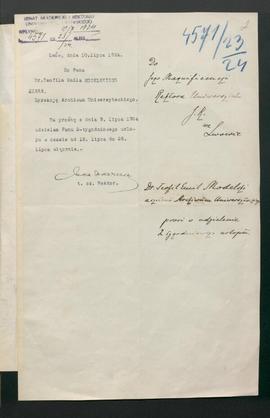 SENAT AKADEMICKI I REKTORAT
4571/23
24
Lwów, dnia 10.lipca 1924.
Do Pana
Dr. Teofila Emila MODELSKIEGO
Archiwum Uniwersyteckiego.
Na prośbę z dnia 9. lipca 1924
udzielam Panu 2-tygodniowego urlo-
pu w czasie od 15. lipca do 28.
lipca włącznie.
Rektor.
4571/23
24
Do
Jego Magnificencji
Rektora Uniwersytetu
J. K.
we Lwowie
Dr. Teofil Emil Modelski
Archiwum
prosi o udzielenie
2 tygodniowego urlopu.